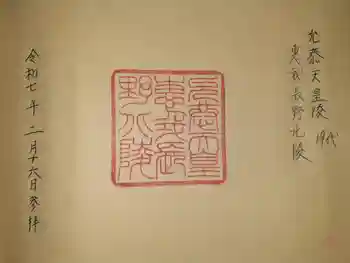 允恭天皇陵 19代
恵我長野北陵
允恭天皇
惠我長
野北陵
令和七年二月十六日参拝